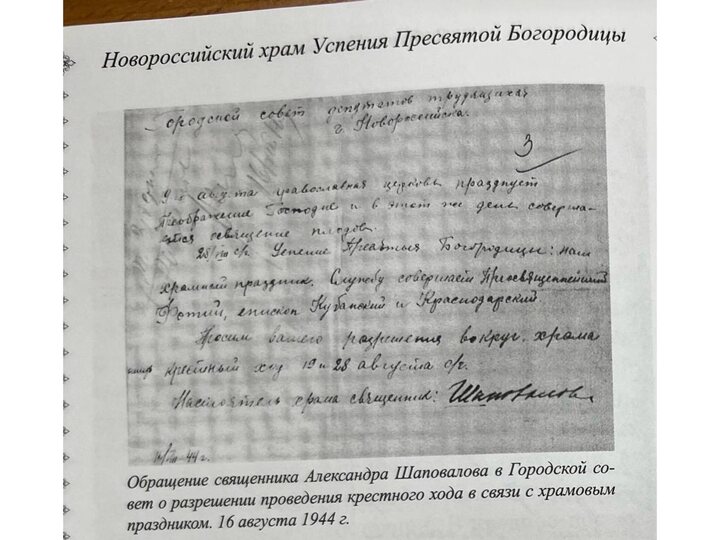 Новороссийский храм Успения Пресвятой Богородицы
Городской совет депутатов трудящихся
г. Новороссийска.
3
августа православная церковь празднует
Преображение Господне и в этот же день соверша-
ется освящение плодов.
28/VIII с/г. Успение Пресвятыя Богородицы: наш
храмный праздник. Службу совершает Преосвященнейший
Фотий, епископ Кубанский и Краснодарский
Просим вашего разрешения вокруг храма
крестный ход 19 и 28 августа с/г.
Настоятель храма священник: Шаповалов
/VIII-44 г.
Обращение священника Александра Шаповалова в Городской со-
вет о разрешении проведения крестного хода в связи с храмовым
праздником. 16 августа 1944 г.